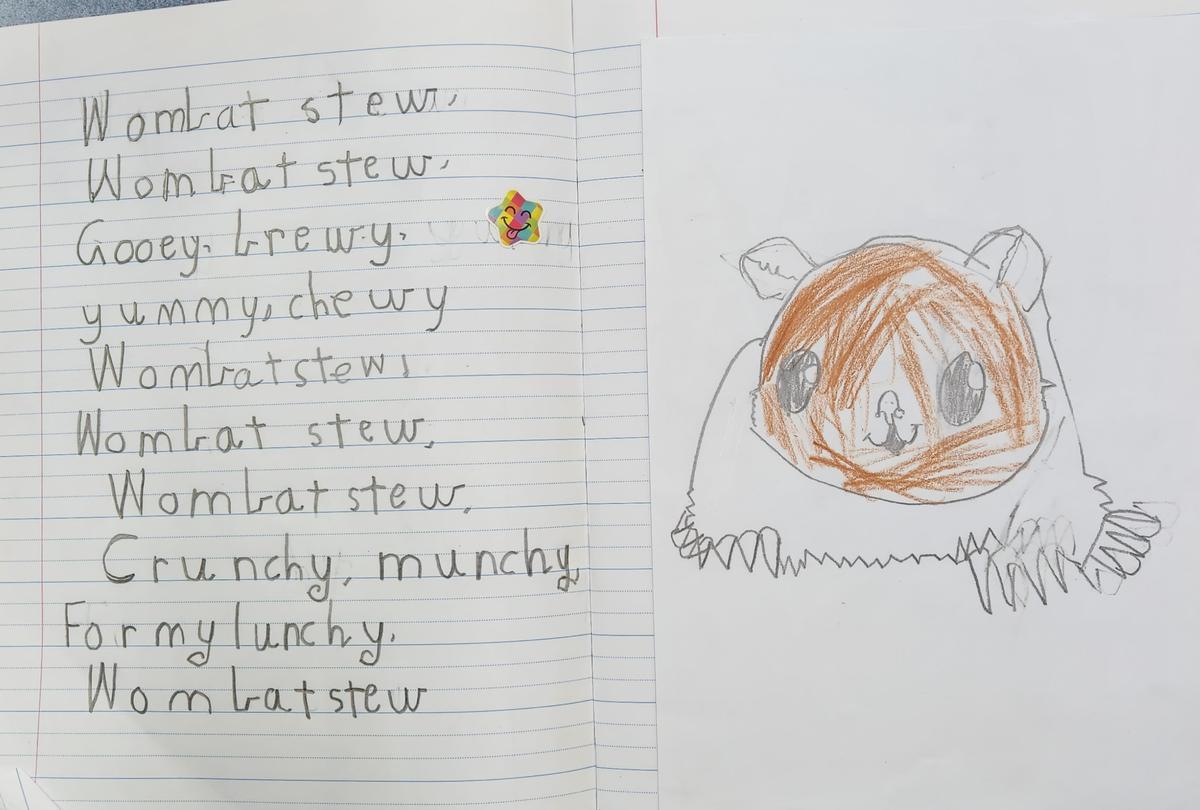 Wombat stew,
Wombat stew,
Gooey, brewy,
yummy, chewy
Wombat stew!
Wombat stew,
Wombat stew,
Crunchy, munchy,
For my lunchy.
Wombat stew